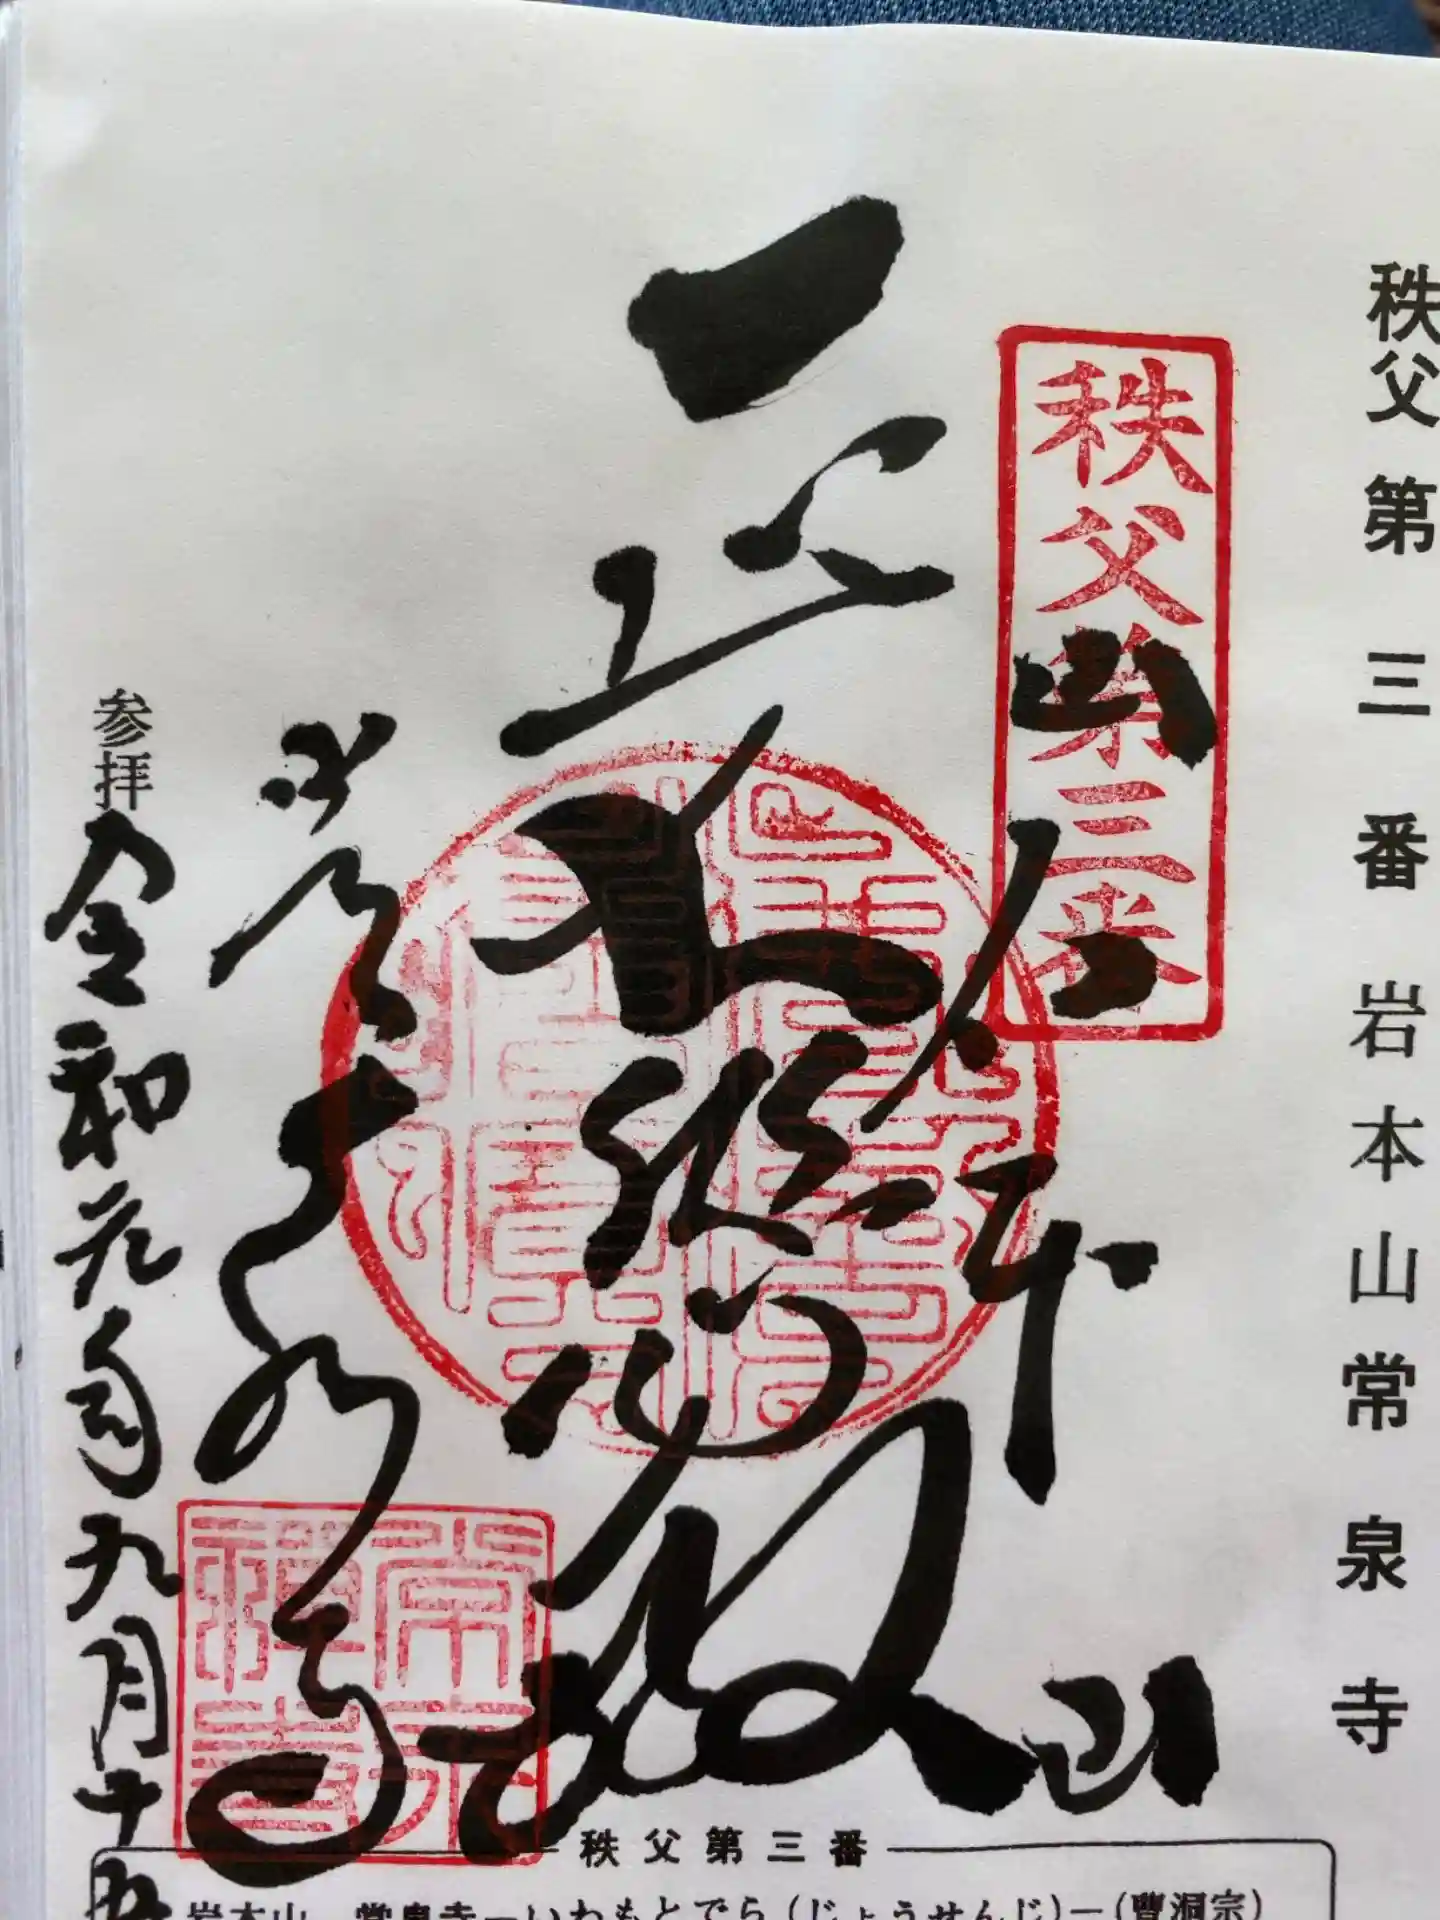 秩父第三番 岩本山常泉寺
秩父第三番
岩本山
大悲殿
常泉寺
参拝 令和元年九月十五
秩父第三番
岩本山 常泉寺―いわもとでら(じょうせんじ)―(曹洞宗)